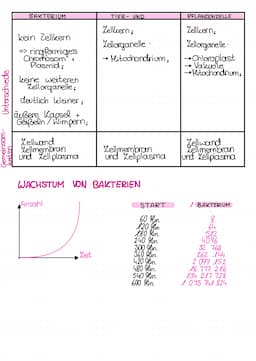 BAKTERIUM
TIER- UND
PFLANZENZELLE
Unterschiede
kein Zellkern
=> ringförmiges
Chromosom +
Plasmid;
keine weiteren
Zellorganelle;
deutlich kleiner;
äußere Kapsel +
Geißeln / Wimpern;
Zellkern;
Zellorganelle
→ Mitochondrium;
Zellkern;
Zellorganelle
→ Chloroplast
→ Vakuole
→ Mitochondrium;
Zellwand
Zellmembran
und Zellplasma
Zellmembran
und Zellplasma
Zellwand
Zellmembran
und Zellplasma
WACHSTUM VON BAKTERIEN
Anzahl
Zeit
START
1 BAKTERIUM
60 Min. 8
120 Min. 64
180 Min. 512
240 Min. 4096
300 Min. 32 768
360 Min. 262 144
420 Min. 2 097 152
480 Min. 16 777 216
540 Min. 134 217 728
600 Min.